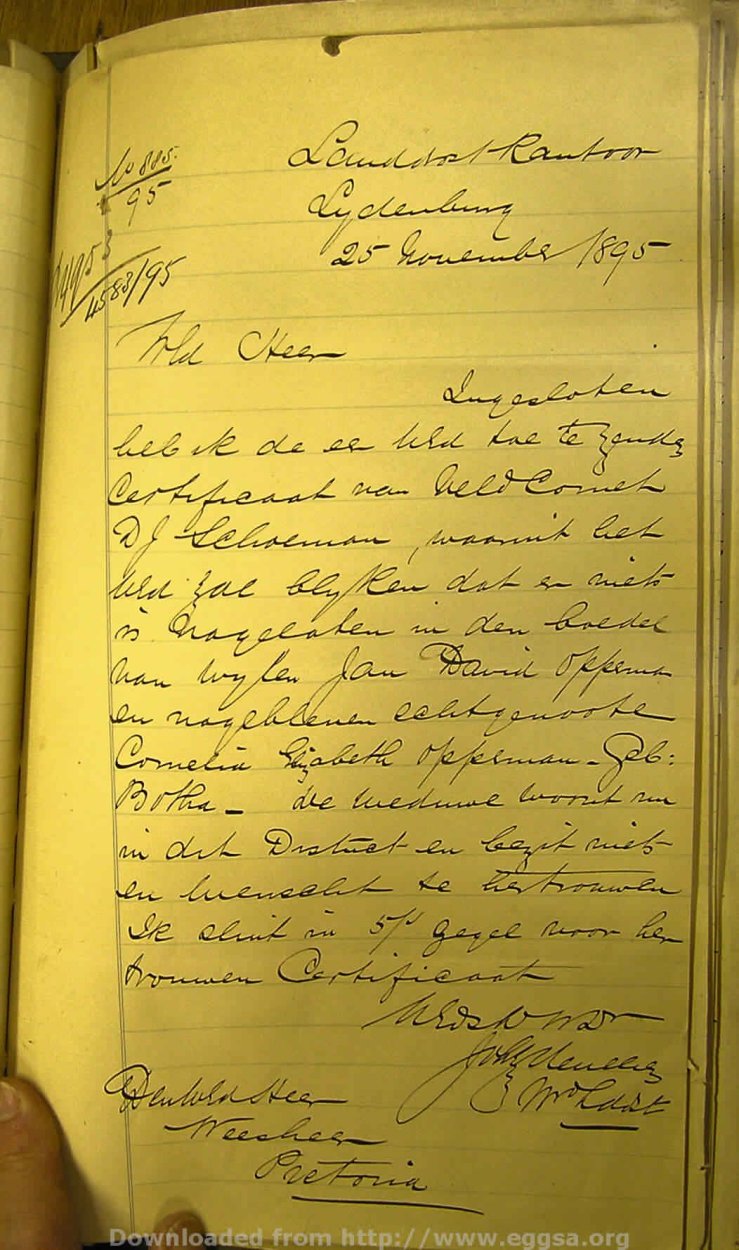 No 885
95
Landdrost Kantoor
Lydenburg
25 November 1895
4583/95
WEd Heer
Ingesloten
heb ik de eer UEd toe te zenden
Certificaat van Veld Cornet
D J Schoeman, waaruit het
UEd zal blyken dat er niets
is nagelaten in den boedel
van wylen Jan David Opperman
en nageblevene echtgenoote
Cornelia Elizabeth Opperman - Geb:
Botha - de weduwe woont nu
in dit District en bezit niets
en wenscht te hertrouwen
Ik sluit in 5/- zegel voor her
trouwen Certificaat
UEds D W Dr
Wd Ldst
Den WEd Heer
Weesheer
Pretoria
Downloaded from http://www.eggsa.org